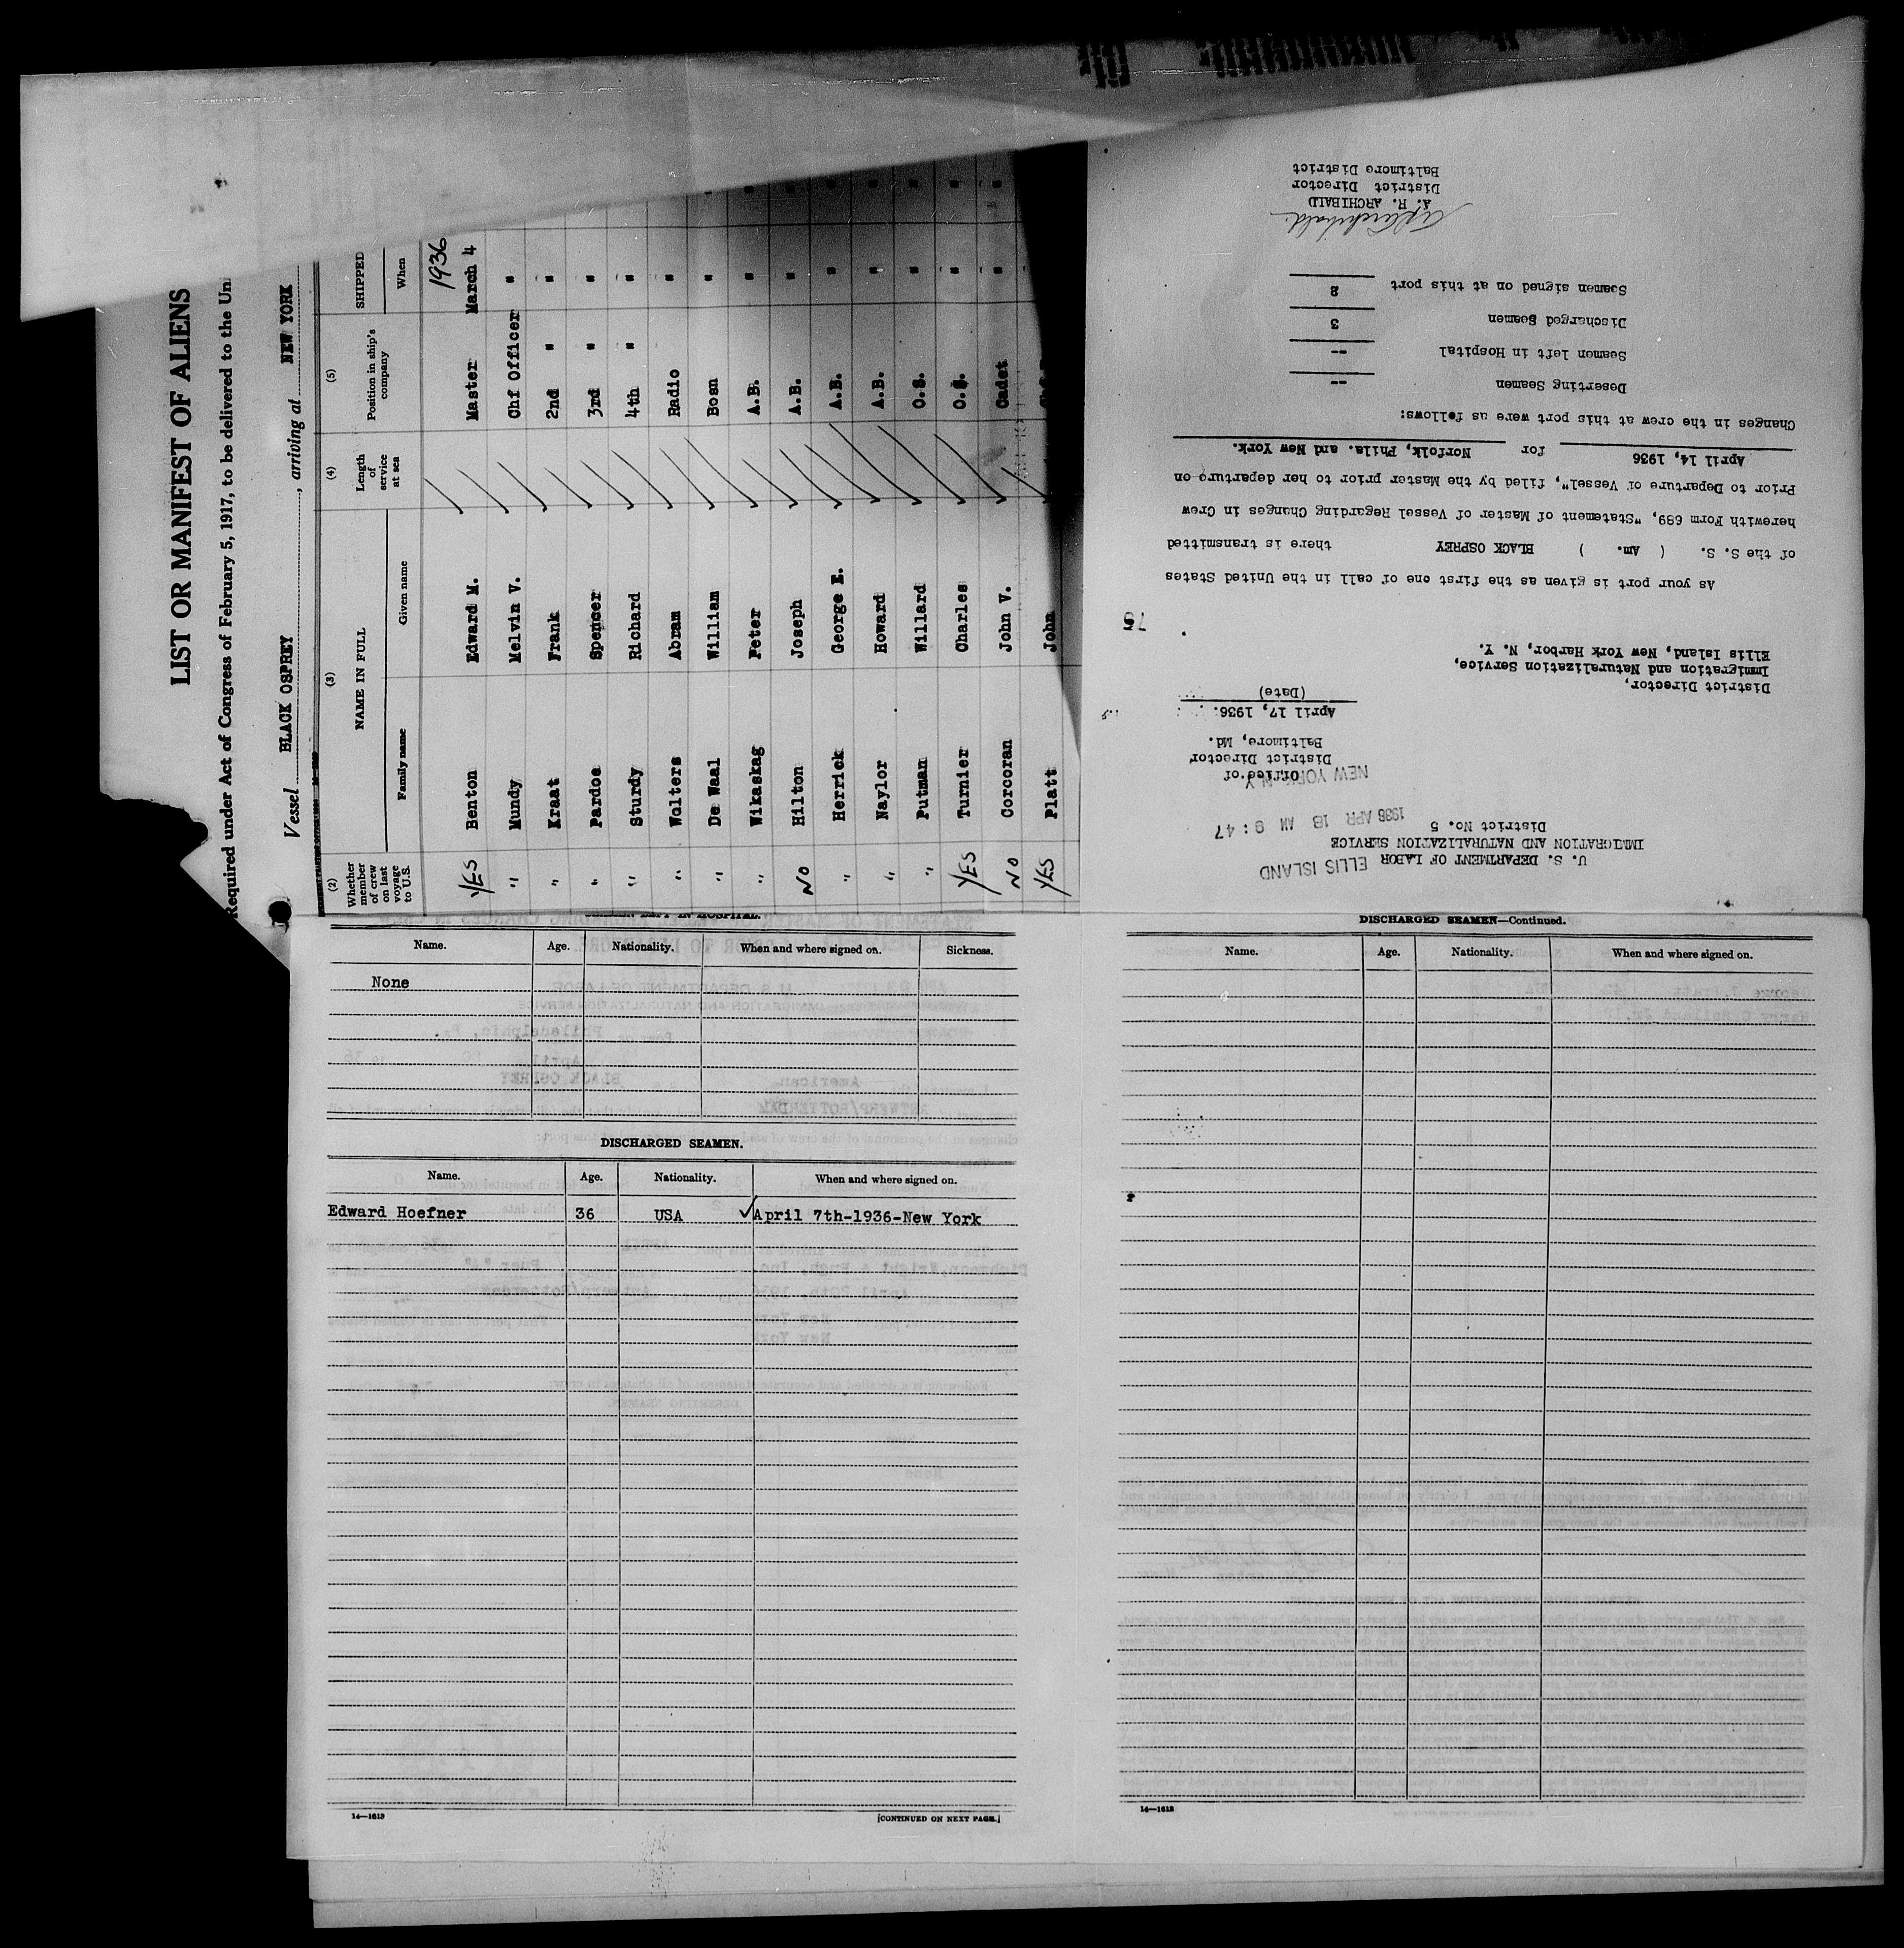 LIST OR MANIFEST OF ALIENS
Required under Act of Congress of February 5, 1917, to be delivered to the
Vessel BLACK OSPREY, arriving at NEW YORK
(2) (3) (4) (5)
Whether member of crew on last voyage to U.S. NAME IN FULL Length of service at sea Position in ship's company SHIPPED
Family name Given name When
1936
YES Benton Edward M. Master March 4
" Mundy Melvin V. Chf Officer "
" Kraat Frank 2nd " "
" Pardoe Spencer 3rd " "
" Sturdy Richard 4th " "
" Wolters Abram Radio "
" De Waal William Bosn "
" Wikaskag Peter A.B. "
NO Hilton Joseph A.B. "
" Herrick George E. A.B. "
" Naylor Howard A.B. "
" Putman Willard O.S. "
YES Turnier Charles O.S. "
NO Corcoran John V. Cadet "
YES Platt John
U. S. DEPARTMENT OF LABOR
ELLIS ISLAND
IMMIGRATION AND NATURALIZATION SERVICE
District No. 5
1936 APR 18 AM 9:47
NEW YORK N.Y.
Office of
District Director
Baltimore, Md.
April 17, 1936.
(Date)
District Director,
Immigration and Naturalization Service,
Ellis Island, New York Harbor, N. Y.
75
As your port is given as the first one of call in the United States
of the S. S. ( Am. ) BLACK OSPREY there is transmitted
herewith Form 689, "Statement of Master of Vessel Regarding Changes in Crew
Prior to Departure of Vessel", filed by the Master prior to her departure on
April 14, 1936 for Norfolk, Phila. and New York.
Changes in the crew at this port were as follows:
Deserting Seamen --
Seamen left in Hospital --
Discharged Seamen 3
Seamen signed on at this port 2
A. R. Archibald
A. R. ARCHIBALD
District Director
Baltimore District
SEAMEN LEFT IN HOSPITAL.
Name. Age. Nationality. When and where signed on. Sickness.
None
DISCHARGED SEAMEN.
Name. Age. Nationality. When and where signed on.
Edward Hoefner 36 USA ✓April 7th-1936-New York
14—1613 [CONTINUED ON NEXT PAGE.]
DISCHARGED SEAMEN—Continued.
Name. Age. Nationality. When and where signed on.
14—1613